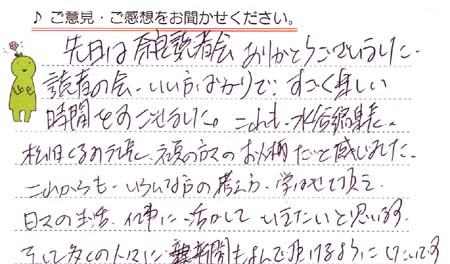 ♪ ご意見・ご感想をお聞かせください。
先日は 読者会 ありがとうございました。
読者の会 いい方ばかりで、すごく楽しい
時間をすごせました。これも、水谷編集長、
お人柄だと感じました。
これからも、いろんな方の考え方、学ばせて頂き
日々の生活、仕事に 活かして いきたいと思います。
そして多くの人々に 新聞もよんで頂けるように したいです